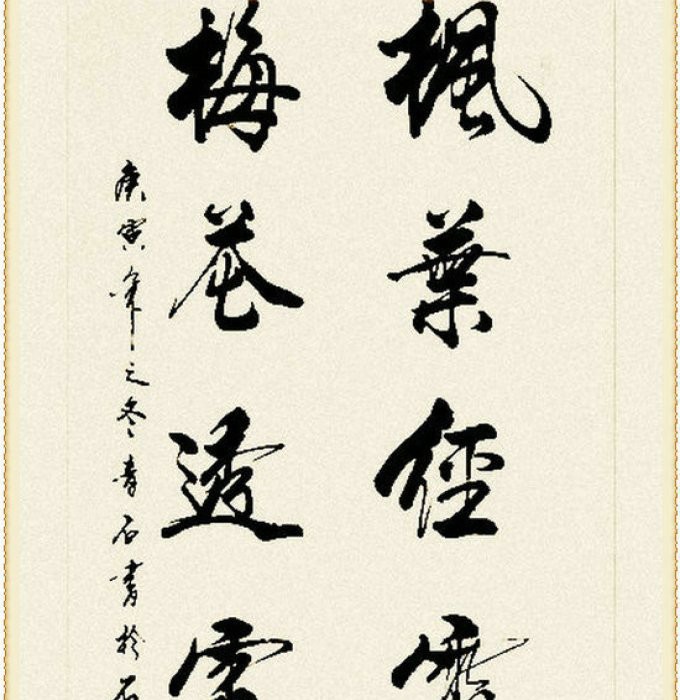 楓葉經霜
梅花透雪
庚寅年之冬青石書於石